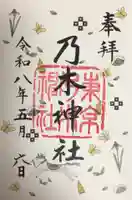 奉拝
乃木神社
東京
令和八年五月六日